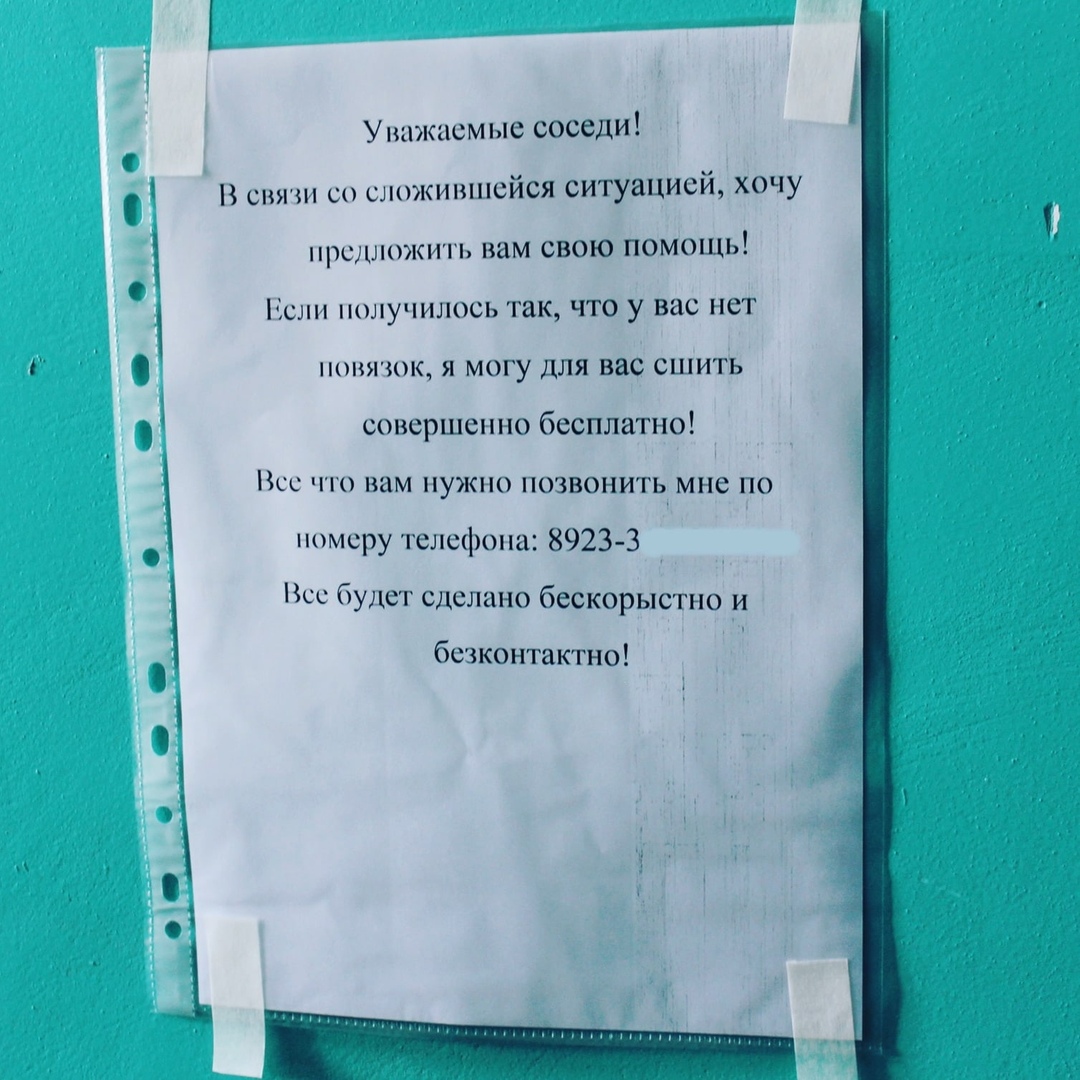 Уважаемые соседи!
В связи со сложившейся ситуацией, хочу
предложить вам свою помощь!
Если получилось так, что у вас нет
повязок, я могу для вас сшить
совершенно бесплатно!
Все что вам нужно позвонить мне по
номеру телефона: 8923-3
Все будет сделано бескорыстно и
безконтактно!